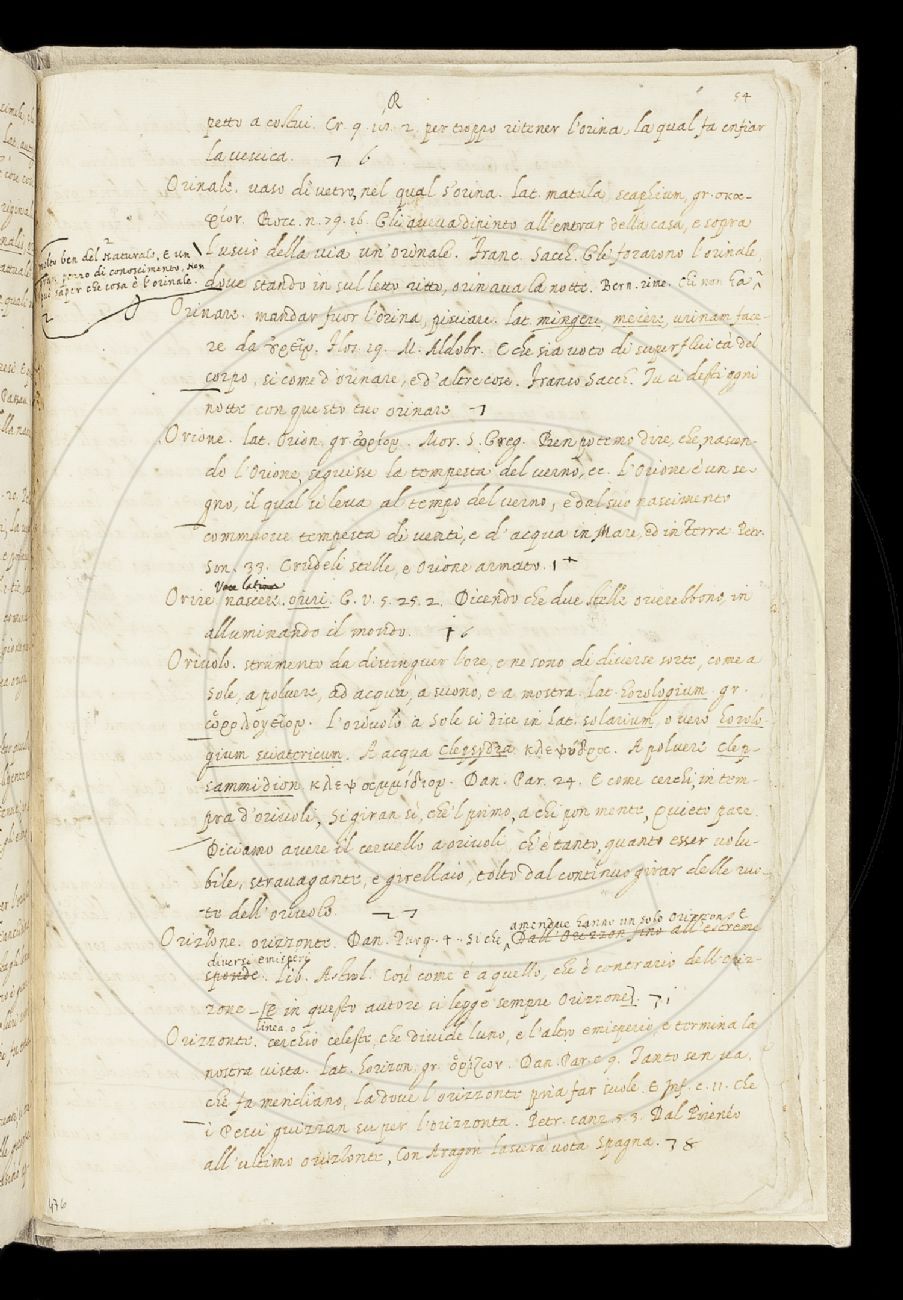 R 54
petto a costui. Cr. 9. 2. per troppo ritener l'orina, la qual fa enfiar
la vescica. 7 6
Orinale. vaso di vetro, nel qual s'orina. lat. matula, scaphium, gr. σκα-
φίον. Bocc. n. 79. 16. Gli aveva dipinto all'entrar della casa, e sopra
l'uscio della via un'orinale. Franc. Sacch. Gle forarono l'orinale,
dove stando in sul letto ritto, orinava la notte. Bern. rime. Chi non ha ^
molto ben del naturale, E un
gran pezzo di conoscimento, Non
può saper che cosa è l'orinale.
2
Orinare. mandar fuor l'orina, pisciare. lat. mingere, meiere, urinam face-
re da οὐρεῖν. M. Aldobr. E che sia voto di superfluità del
corpo, si come d'orinare, e d'altre cose. Franco Sacch. Tu ci desti ogni
notte con questo tuo orinare 7
Orione. lat. Orion, gr. ὠρίων. Mor. S. Greg. Ben potemo dire, che, nascen-
do l'Orione, seguisse la tempesta del verno, ec. l'Orione è un se-
gno, il qual si leva al tempo del verno, e dal suo nascimento
commuove tempesta di venti, e d'acqua in Mare, ed in Terra Petr.
Son. 33. Crudeli stelle, e Orione armato. 1 +
Voce latina
Orire nascere. oriri. G. V. 5. 25. 2. Dicendo che due stelle orerebbono, in
alluminando il mondo. 6
Orivolo. strumento da distinguer l'ore, e ne sono di diverse sorte, come a
Sole, a polvere, ad acqua, a suono, e a mostra. lat. horologium. gr.
ὡρολογεῖον. L'orivolo a Sole si dice in lat. solarium, o vero horolo
gium sciatericum. A acqua Clepsydra κλεψύδρα. A polvere Clep-
sammidion κλεψαμμίδιον. Dan. Par. 24. E come cerchi, in tem-
pra d'orivoli, Si giran sì, che'l primo, a chi pon mente, Quieto pare.
Diciamo avere il cervello a orivoli, ch'è tanto, quanto esser volu-
bile, stravagante, e girellaio, tolto dal continuo girar delle ruo-
te dell'orivolo. 7 7
amendue hanno un solo Orizzon, E
Orizzone. orizzonte. Dan. Purg. 4. Si che, Dall'Orizzon fino all'estreme
diversi emisperi
sponde. Lib. Astrol. Così come è a quello, che è contrario dell'oriz-
zone - [E in questo autore si legge sempre Orizzone]. 7 1
linea, o
Orizzonte. cerchio celeste, che divide l'uno, e l'altro emisperio, e termina la
nostra vista. Lat. horizon. gr. ὁρίζων. Dan. Par. c. 9. Tanto sen va,
che fa meridiano, La dove l'orizzonte pria far suole. E Inf. c. 11. Che
i Pesci guizzan su per l'orizzonta. Petr. canz. 5. 3. Dal Pirenéo
all'ultimo orizzonte, Con Aragon lascerà vota Spagna. 7 8
476